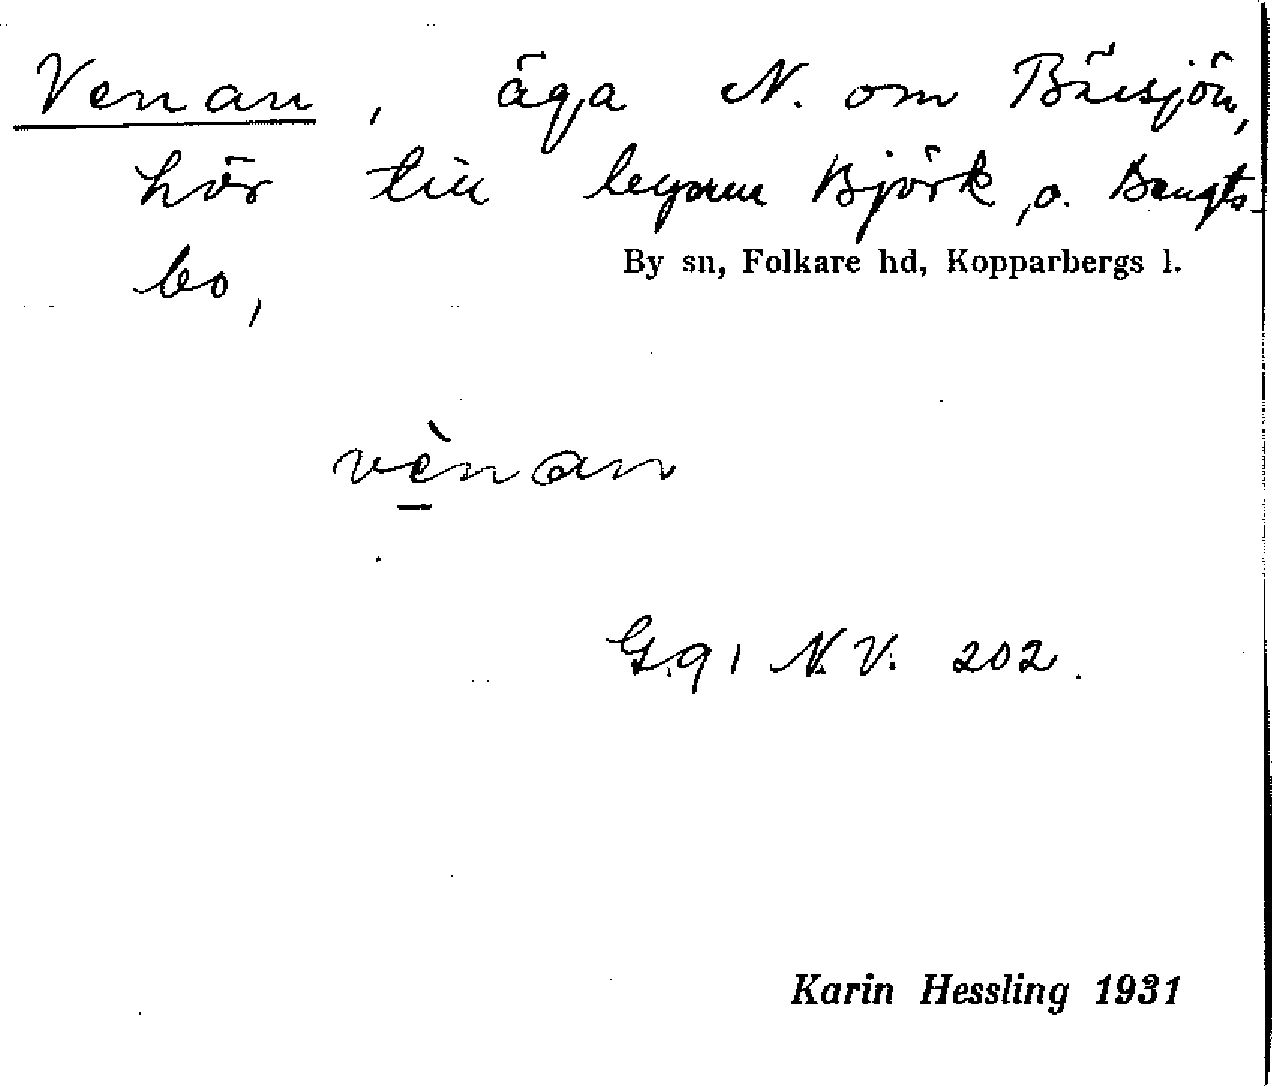 Venan, äga N. om Bäsjön,
hör till byarna Björk o. Bengts-
bo,
By sn, Folkare hd, Kopparbergs l.
vènan
G.91 N.V. 202.
Karin Hessling 1931